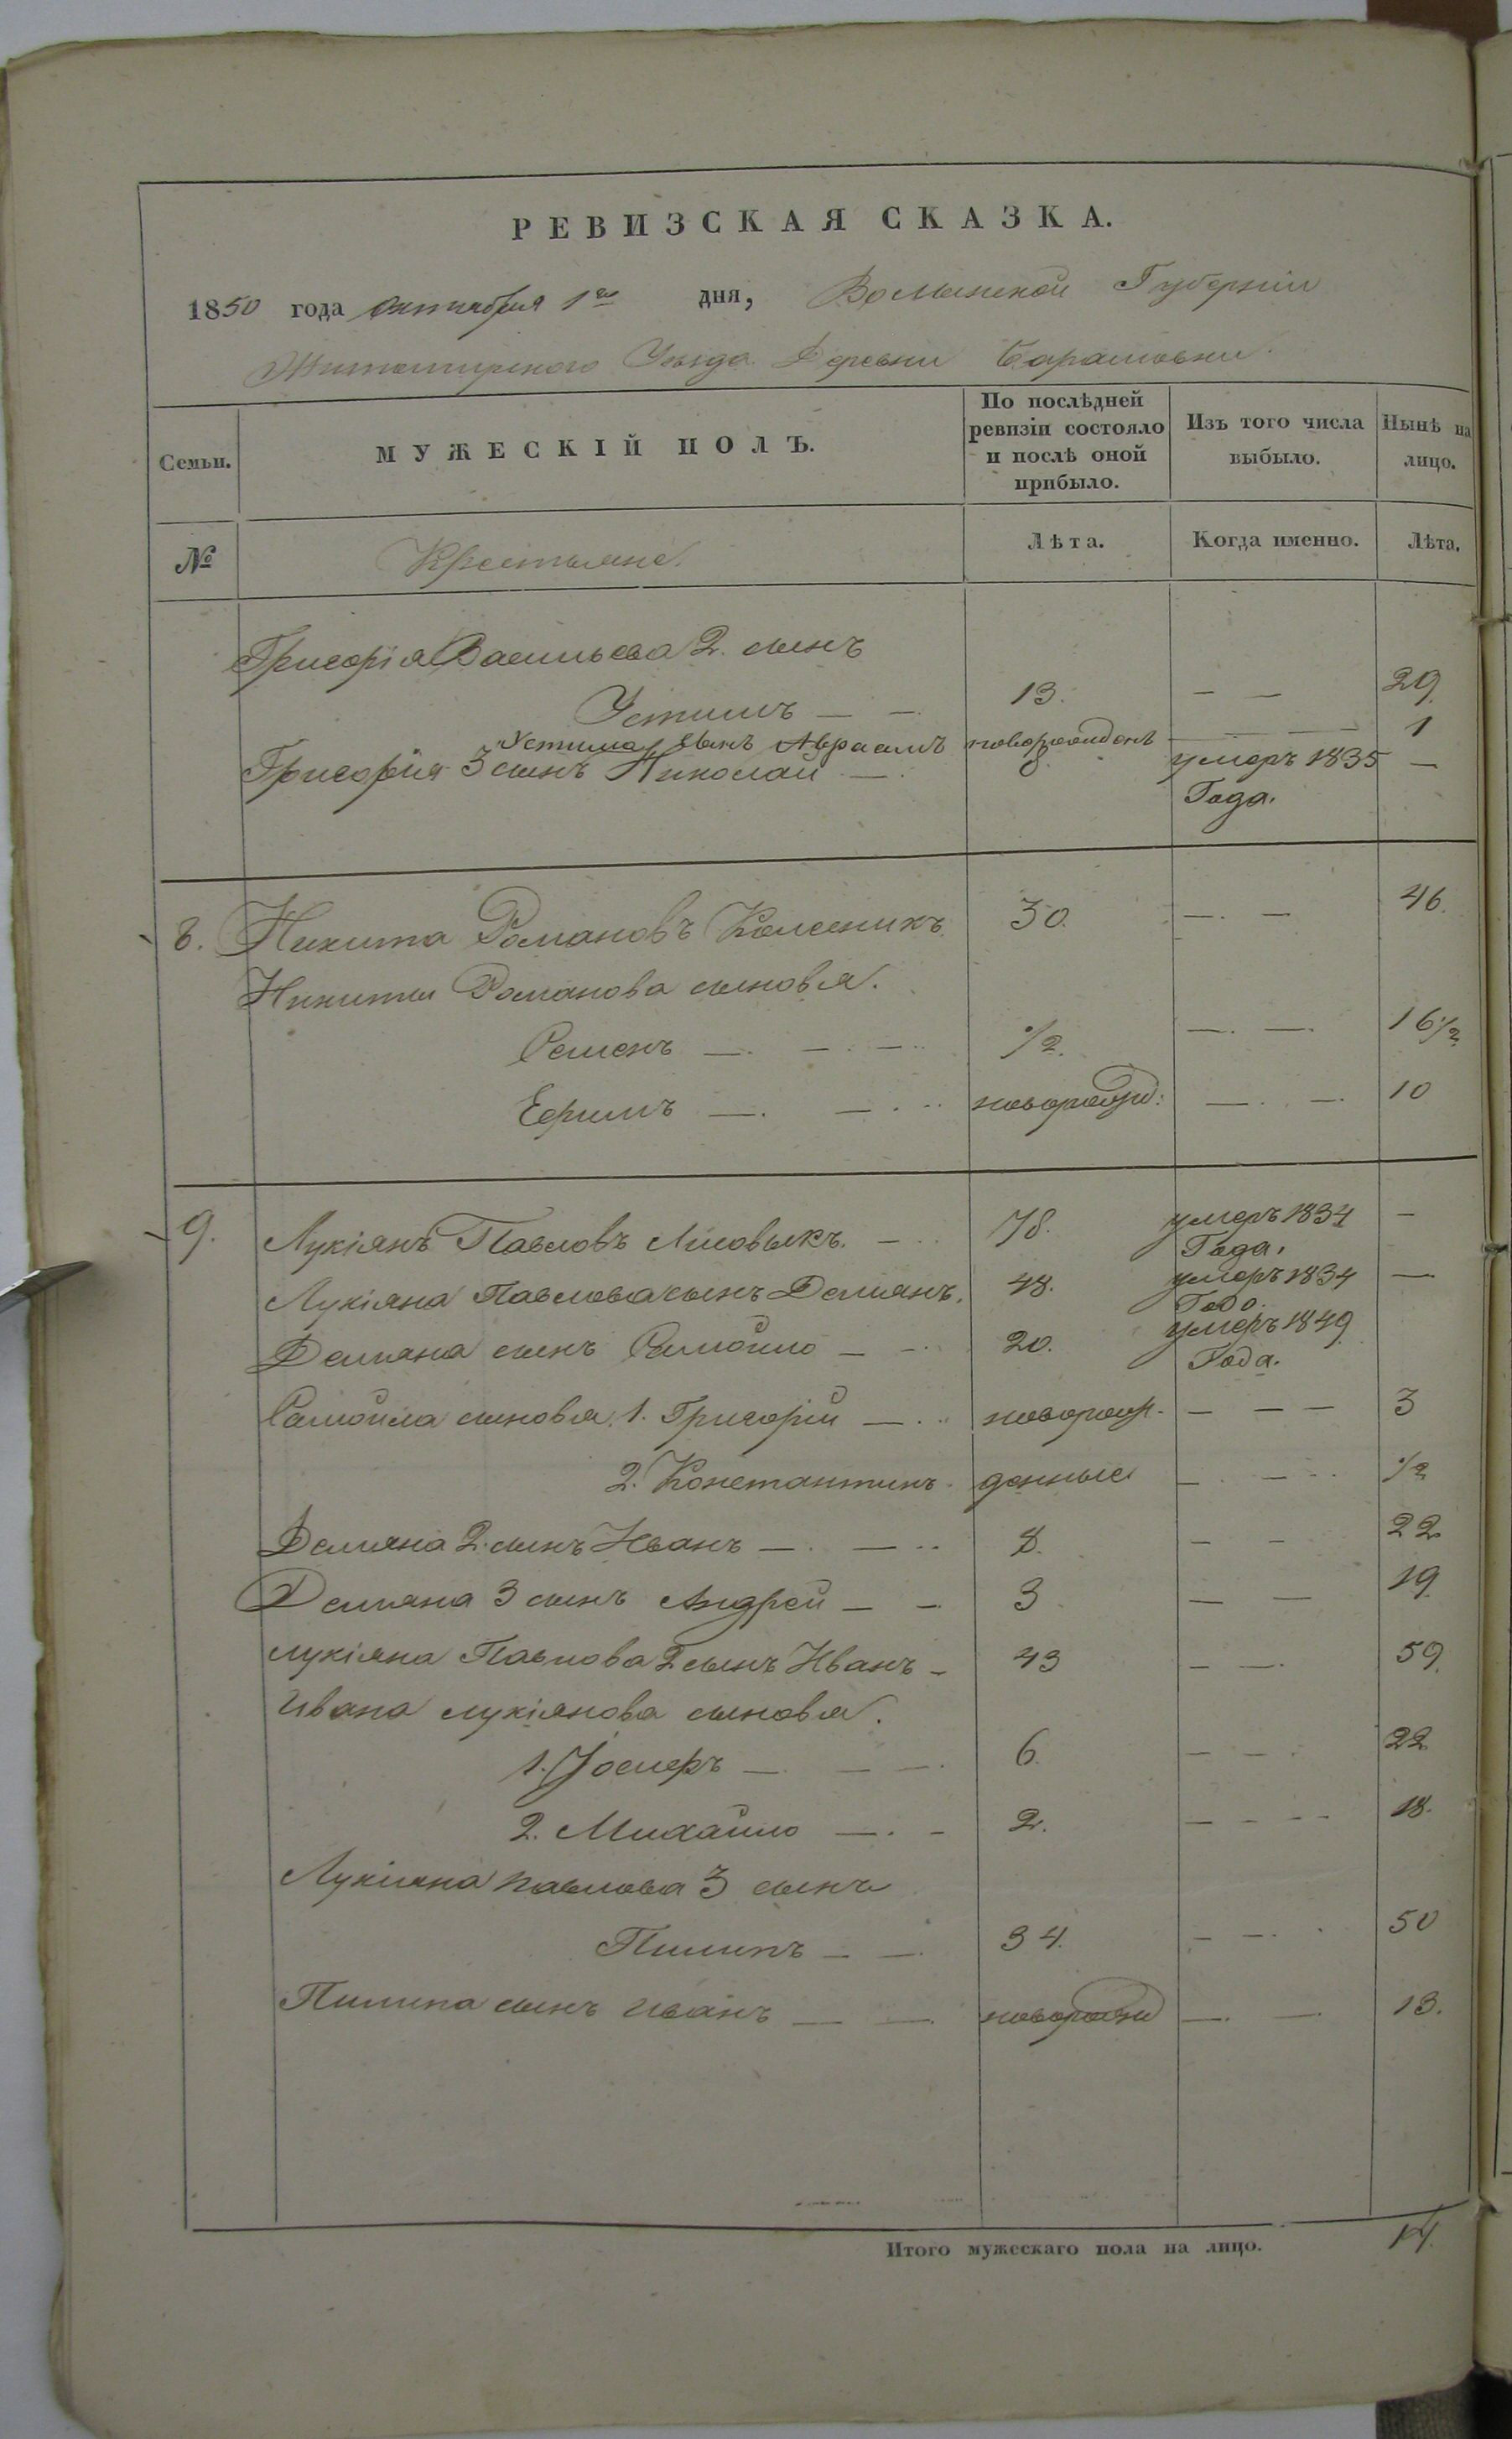 РЕВИЗСКАЯ СКАЗКА.
1850 года октября 1го дня, Волынской Губерніи
Житомирского Уезда Деревни Барашовки.
Семьи. МУЖЕСКІЙ ПОЛЪ. По послѣдней ревизіи состояло и послѣ оной прибыло. Изъ того числа выбыло. Нынѣ на лицо.
№ Крестьяне. Лѣта. Когда именно. Лѣта.
Григорія Васильева 2. сынъ
Устимъ — — 13. — — 29.
Устима сынъ Авраамъ новорожденъ — — — 1
Григорія 3 сынъ Николай — 8. умеръ 1835 —
Года.
8. Никита Романовъ Колесникъ 30. — — 46.
Никиты Романова сыновья.
Семенъ — — — 1/2. — — 16 1/2
Ефимъ — — новорожд: — — 10
9. Лукіянъ Павловъ — 78. умеръ 1834 —
Года.
Лукіяна Павлова сынъ Демянъ. 48. умеръ 1834 —
Года.
Демяна сынъ Самойло — — 20. умеръ 1849
Года.
Самойла сыновья. 1. Григорій — новорож- — — — 3
2. Константинъ денные — — 1/2
Демяна 2. сынъ Иванъ — — 8. — — 22
Демяна 3 сынъ Андрей — — 3 — — 19.
Лукіяна Павлова 2 сынъ Иванъ — 43 — — 59.
Ивана Лукіянова сыновья.
1. Іосифъ — — — 6. — — 22
2. Михайло — — 2. — — — 18.
Лукіяна Павлова 3 сынъ
Пилипъ — — 34. — — 50
Пилипа сынъ Иванъ — — новорожд — — 13.
Итого мужескаго пола на лицо. 14.